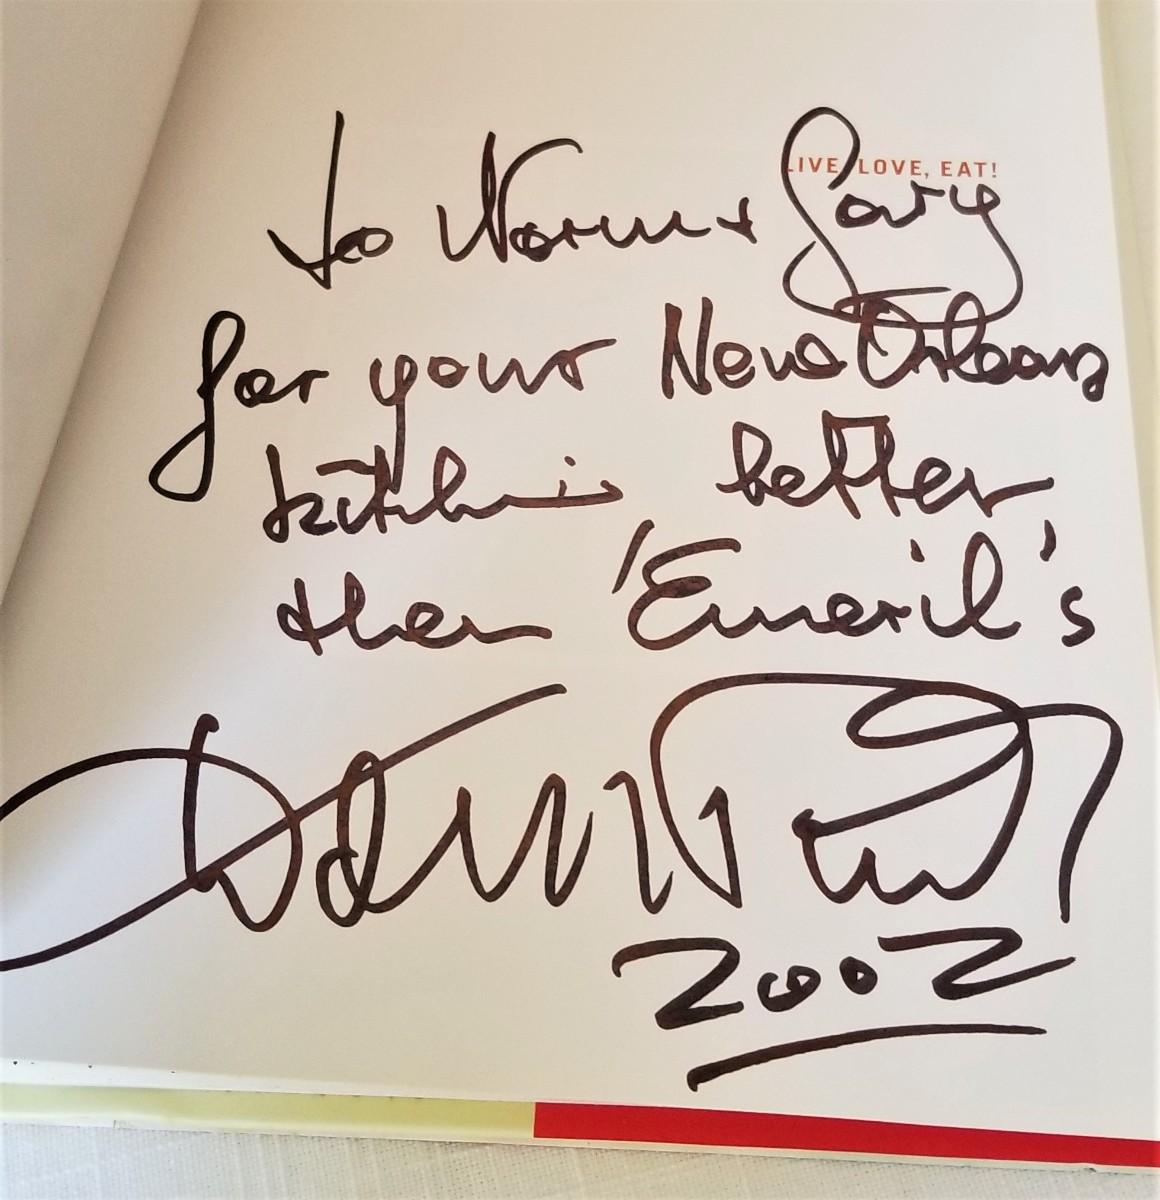 LIVE, LOVE, EAT!
to Norm + Gary
for your New Orleans
kitchen better
then 'Emeril's
2002